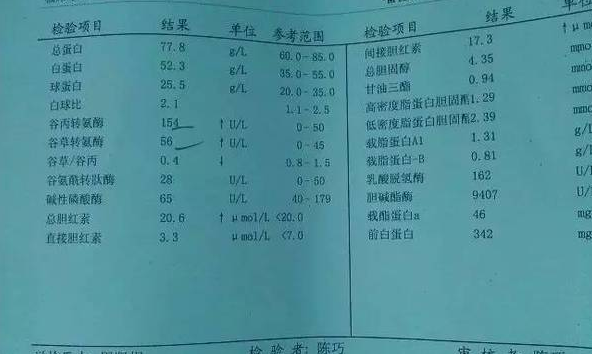 检验项目 结果 单位 参考范围
总蛋白 77.8 g/L 60.0-85.0
白蛋白 52.3 g/L 35.0-55.0
球蛋白 25.5 g/L 20.0-35.0
白球比 2.1 1.1-2.5
谷丙转氨酶 154 ↑ U/L 0-50
谷草转氨酶 56 ↑ U/L 0-45
谷草/谷丙 0.4 ↓ 0.8-1.5
谷氨酰转肽酶 28 U/L 0-50
碱性磷酸酶 65 U/L 40-179
总胆红素 20.6 ↑ μmol/L <20.0
直接胆红素 3.3 μmol/L <7.0
检验项目 结果 单位
间接胆红素 17.3 ↑ μm
总胆固醇 4.35 mmo
甘油三酯 0.94 mmo
高密度脂蛋白胆固醇1.29 mmo
低密度脂蛋白胆固醇2.39 mm
载脂蛋白A1 1.31 g/
载脂蛋白-B 0.81 g/
乳酸脱氢酶 162 U/
胆碱酯酶 9407 U/
载脂蛋白a 46 mg
前白蛋白 342 mg
检验者:陈巧